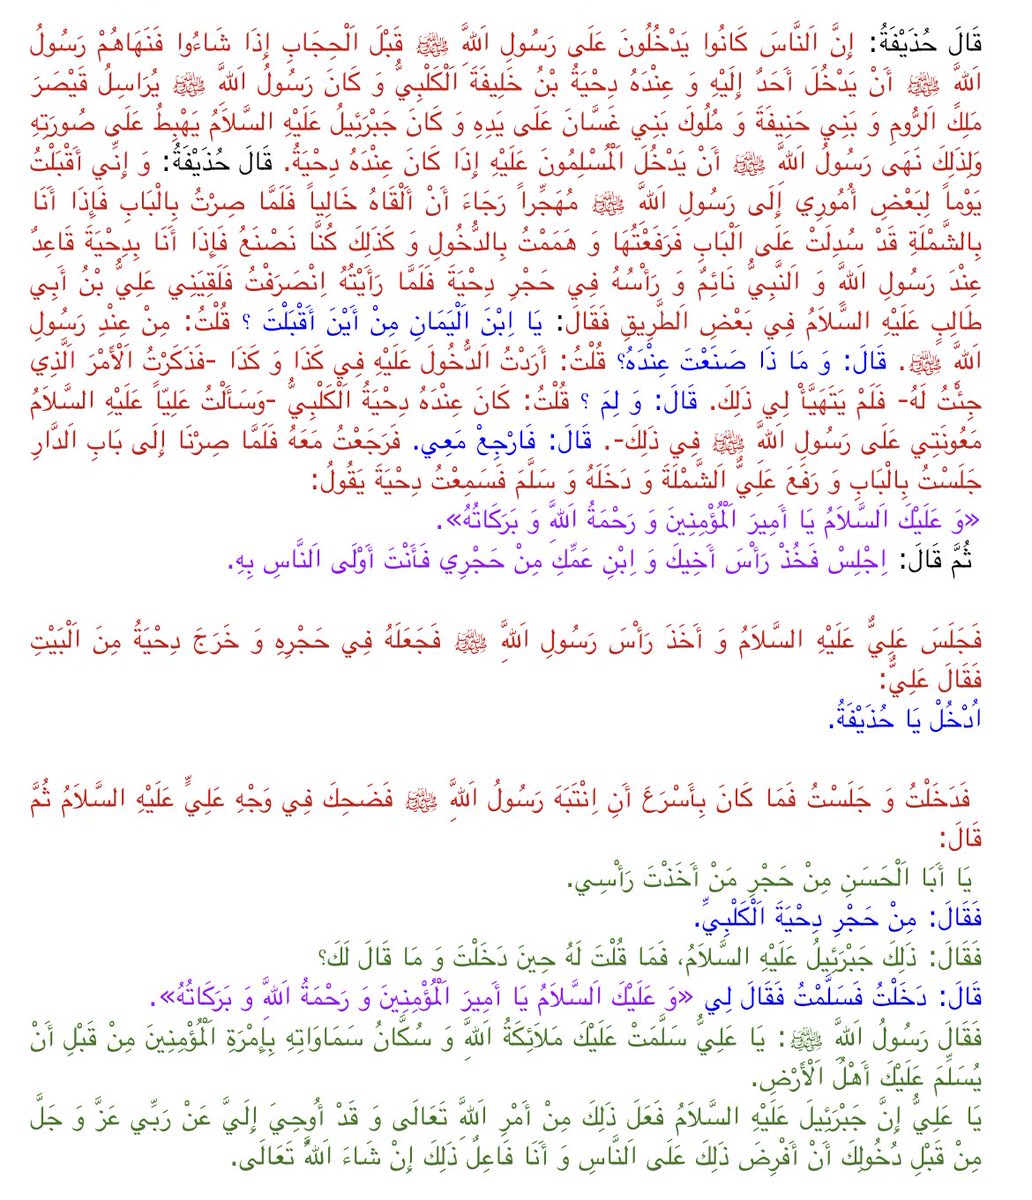 قَالَ حُذَيْفَةُ: إِنَّ اَلنَّاسَ كَانُوا يَدْخُلُونَ عَلَى رَسُولِ اَللَّهِ ﷺ قَبْلَ اَلْحِجَابِ إِذَا شَاءُوا فَنَهَاهُمْ رَسُولُ
اَللَّهِ ﷺ أَنْ يَدْخُلَ أَحَدٌ إِلَيْهِ وَ عِنْدَهُ دِحْيَةُ بْنُ خَلِيفَةَ اَلْكَلْبِيُّ وَ كَانَ رَسُولُ اَللَّهِ ﷺ يُرَاسِلُ قَيْصَرَ
مَلِكَ اَلرُّومِ وَ بَنِي حَنِيفَةَ وَ مُلُوكَ بَنِي غَسَّانَ عَلَى يَدِهِ وَ كَانَ جَبْرَئِيلُ عَلَيْهِ السَّلاَمُ يَهْبِطُ عَلَى صُورَتِهِ
وَلِذَلِكَ نَهَى رَسُولُ اَللَّهِ ﷺ أَنْ يَدْخُلَ اَلْمُسْلِمُونَ عَلَيْهِ إِذَا كَانَ عِنْدَهُ دِحْيَةُ. قَالَ حُذَيْفَةُ: وَ إِنِّي أَقْبَلْتُ
يَوْماً لِبَعْضِ أُمُورِي إِلَى رَسُولِ اَللَّهِ ﷺ مُهَجِّراً رَجَاءَ أَنْ أَلْقَاهُ خَالِياً فَلَمَّا صِرْتُ بِالْبَابِ فَإِذَا أَنَا
بِالشَّمْلَةِ قَدْ سُدِلَتْ عَلَى اَلْبَابِ فَرَفَعْتُهَا وَ هَمَمْتُ بِالدُّخُولِ وَ كَذَلِكَ كُنَّا نَصْنَعُ فَإِذَا أَنَا بِدِحْيَةَ قَاعِدٌ
عِنْدَ رَسُولِ اَللَّهِ وَ اَلنَّبِيُّ نَائِمٌ وَ رَأْسُهُ فِي حَجْرِ دِحْيَةَ فَلَمَّا رَأَيْتُهُ اِنْصَرَفْتُ فَلَقِيَنِي عَلِيُّ بْنُ أَبِي
طَالِبٍ عَلَيْهِ السَّلاَمُ فِي بَعْضِ اَلطَّرِيقِ فَقَالَ: يَا اِبْنَ اَلْيَمَانِ مِنْ أَيْنَ أَقْبَلْتَ ؟ قُلْتُ: مِنْ عِنْدِ رَسُولِ
اَللَّهِ ﷺ. قَالَ: وَ مَا ذَا صَنَعْتَ عِنْدَهُ؟ قُلْتُ: أَرَدْتُ اَلدُّخُولَ عَلَيْهِ فِي كَذَا وَ كَذَا -فَذَكَرْتُ اَلْأَمْرَ اَلَّذِي
جِئْتُ لَهُ- فَلَمْ يَتَهَيَّأْ لِي ذَلِكَ. قَالَ: وَ لِمَ ؟ قُلْتُ: كَانَ عِنْدَهُ دِحْيَةُ اَلْكَلْبِيُّ -وَسَأَلْتُ عَلِيّاً عَلَيْهِ السَّلاَمُ
مَعُونَتِي عَلَى رَسُولِ اَللَّهِ ﷺ فِي ذَلِكَ-. قَالَ: فَارْجِعْ مَعِي. فَرَجَعْتُ مَعَهُ فَلَمَّا صِرْنَا إِلَى بَابِ اَلدَّارِ
جَلَسْتُ بِالْبَابِ وَ رَفَعَ عَلِيٌّ اَلشَّمْلَةَ وَ دَخَلَهُ وَ سَلَّمَ فَسَمِعْتُ دِحْيَةَ يَقُولُ:
«وَ عَلَيْكَ اَلسَّلاَمُ يَا أَمِيرَ اَلْمُؤْمِنِينَ وَ رَحْمَةُ اَللَّهِ وَ بَرَكَاتُهُ».
ثُمَّ قَالَ: اِجْلِسْ فَخُذْ رَأْسَ أَخِيكَ وَ اِبْنِ عَمِّكَ مِنْ حَجْرِي فَأَنْتَ أَوْلَى اَلنَّاسِ بِهِ.
فَجَلَسَ عَلِيٌّ عَلَيْهِ السَّلاَمُ وَ أَخَذَ رَأْسَ رَسُولِ اَللَّهِ ﷺ فَجَعَلَهُ فِي حَجْرِهِ وَ خَرَجَ دِحْيَةُ مِنَ اَلْبَيْتِ
فَقَالَ عَلِيٌّ:
اُدْخُلْ يَا حُذَيْفَةُ.
فَدَخَلْتُ وَ جَلَسْتُ فَمَا كَانَ بِأَسْرَعَ أَنِ اِنْتَبَهَ رَسُولُ اَللَّهِ ﷺ فَضَحِكَ فِي وَجْهِ عَلِيٍّ عَلَيْهِ السَّلاَمُ ثُمَّ
قَالَ:
يَا أَبَا اَلْحَسَنِ مِنْ حَجْرِ مَنْ أَخَذْتَ رَأْسِي.
فَقَالَ: مِنْ حَجْرِ دِحْيَةَ اَلْكَلْبِيِّ.
فَقَالَ: ذَلِكَ جَبْرَئِيلُ عَلَيْهِ السَّلاَمُ، فَمَا قُلْتَ لَهُ حِينَ دَخَلْتَ وَ مَا قَالَ لَكَ؟
قَالَ: دَخَلْتُ فَسَلَّمْتُ فَقَالَ لِي «وَ عَلَيْكَ اَلسَّلاَمُ يَا أَمِيرَ اَلْمُؤْمِنِينَ وَ رَحْمَةُ اَللَّهِ وَ بَرَكَاتُهُ».
فَقَالَ رَسُولُ اَللَّهِ ﷺ: يَا عَلِيُّ سَلَّمَتْ عَلَيْكَ مَلاَئِكَةُ اَللَّهِ وَ سُكَّانُ سَمَاوَاتِهِ بِإِمْرَةِ اَلْمُؤْمِنِينَ مِنْ قَبْلِ أَنْ
يُسَلِّمَ عَلَيْكَ أَهْلُ اَلْأَرْضِ.
يَا عَلِيُّ إِنَّ جَبْرَئِيلَ عَلَيْهِ السَّلاَمُ فَعَلَ ذَلِكَ مِنْ أَمْرِ اَللَّهِ تَعَالَى وَ قَدْ أُوحِيَ إِلَيَّ عَنْ رَبِّي عَزَّ وَ جَلَّ
مِنْ قَبْلِ دُخُولِكَ أَنْ أَفْرِضَ ذَلِكَ عَلَى اَلنَّاسِ وَ أَنَا فَاعِلٌ ذَلِكَ إِنْ شَاءَ اَللَّهُ تَعَالَى.